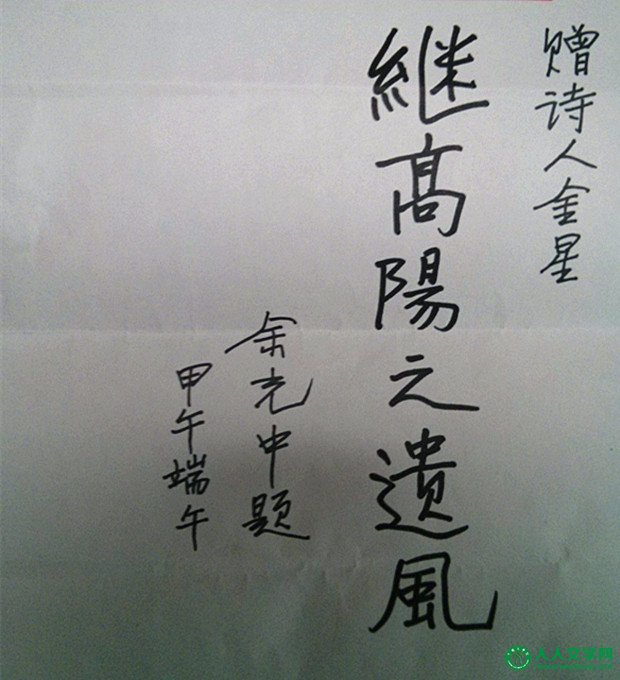 赠诗人金星
継髙陽之遺風
余光中题
甲午端午
人人文学网